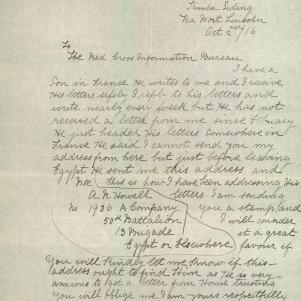 Timba Siding
Via Port Lincoln
Oct 2nd /16
To
The Red Cross Information Bureau
I have a
Son in France He writes to me and I receive
His letters safely I reply to his letters and
write nearly every week but He has not
received a letter from me since February
He just headed His letters Somewhere in
France He said I cannot send you my
address from here but just before leaving
Egypt He sent me this address and
Pte this is how I have been addressing His
A R Howell letters. I am sending
No 1936 A Company You a stamp and
50th Battalion I will consider
13 Brigade it a great
Egypt or Elsewhere favour if
You will Kindly let me know if this
address ought to find Him as He is very
anxious to get a letter from Home trusting
You will oblige me I am Yours respectfully